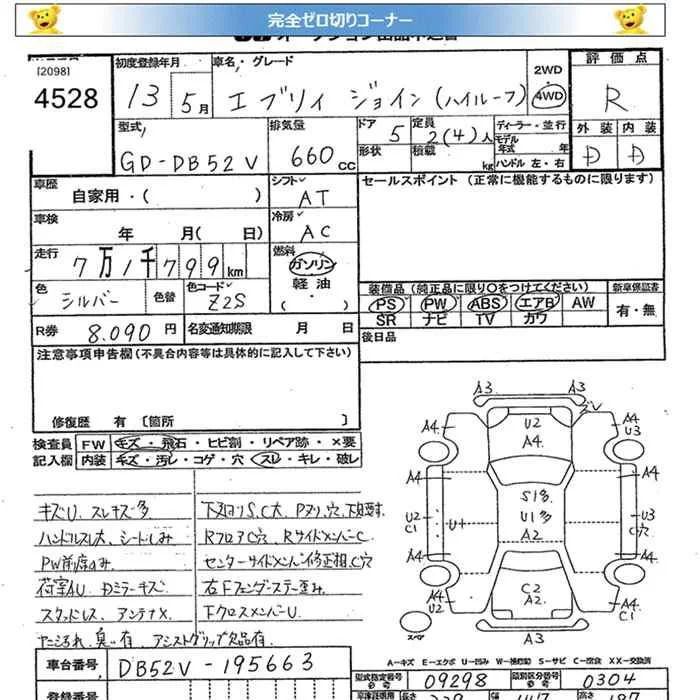 完全ゼロ切りコーナー
[2098]
4528
初度登録年月 車名・グレード 2WD 評価点
13 5月 エブリィ ジョイン(ハイルーフ) 4WD R
型式 排気量 ドア 定員 ディーラー・並行 外装 内装
GD-DB52V 660cc 5 2(4)人 モデル年式 年 D D
形状 積載 kg ハンドル 左・右
車歴 自家用・( ) シフト AT セールスポイント(正常に機能するものに限ります)
車検 年 月( 日) 冷房 AC
走行 7万1千799km 燃料 ガソリン 軽油 ・( )
色 シルバー 色替 色コード Z2S
装備品(純正品に限り○をつけてください) 新車保証書
PS PW ABS エアB AW 有・無
SR ナビ TV カワ
R券 8.090円 名変通知期限 月 日 後日品
注意事項申告欄(不具合内容等は具体的に記入して下さい)
修復歴 有[箇所 ]
検査員 FW キズ・飛石・ヒビ割・リペア跡・×要
記入欄 内装 キズ・汚レ・コゲ・穴 スレ・キレ・破レ
キズU、スレキズ多
ハンドルスレ大、シートしみ
荷室AU Dミラーキズ
スタッドレス、アンテナX
ヤニよごれ、臭い有、アシストグリップ欠品有
RフロアC穴 RサイドメンバーC
センターサイドメンバー修正相、C穴
右Fフェンダーステー歪み
FクロスメンバーU
A3 A3
A4 U2 A4 A4 U3
A4 A4
S1多
U2 C1 U+ U1多 U3 C穴
A2
A4 U2 C2 A2 A4 C1
スペア A3
A-キズ E-エクボ U-凹み W-補修跡 S-サビ C-腐食 XX-交換済
車台番号 DB52V-195663
型式指定番号 09298 類別区分番号 0304
登録番号